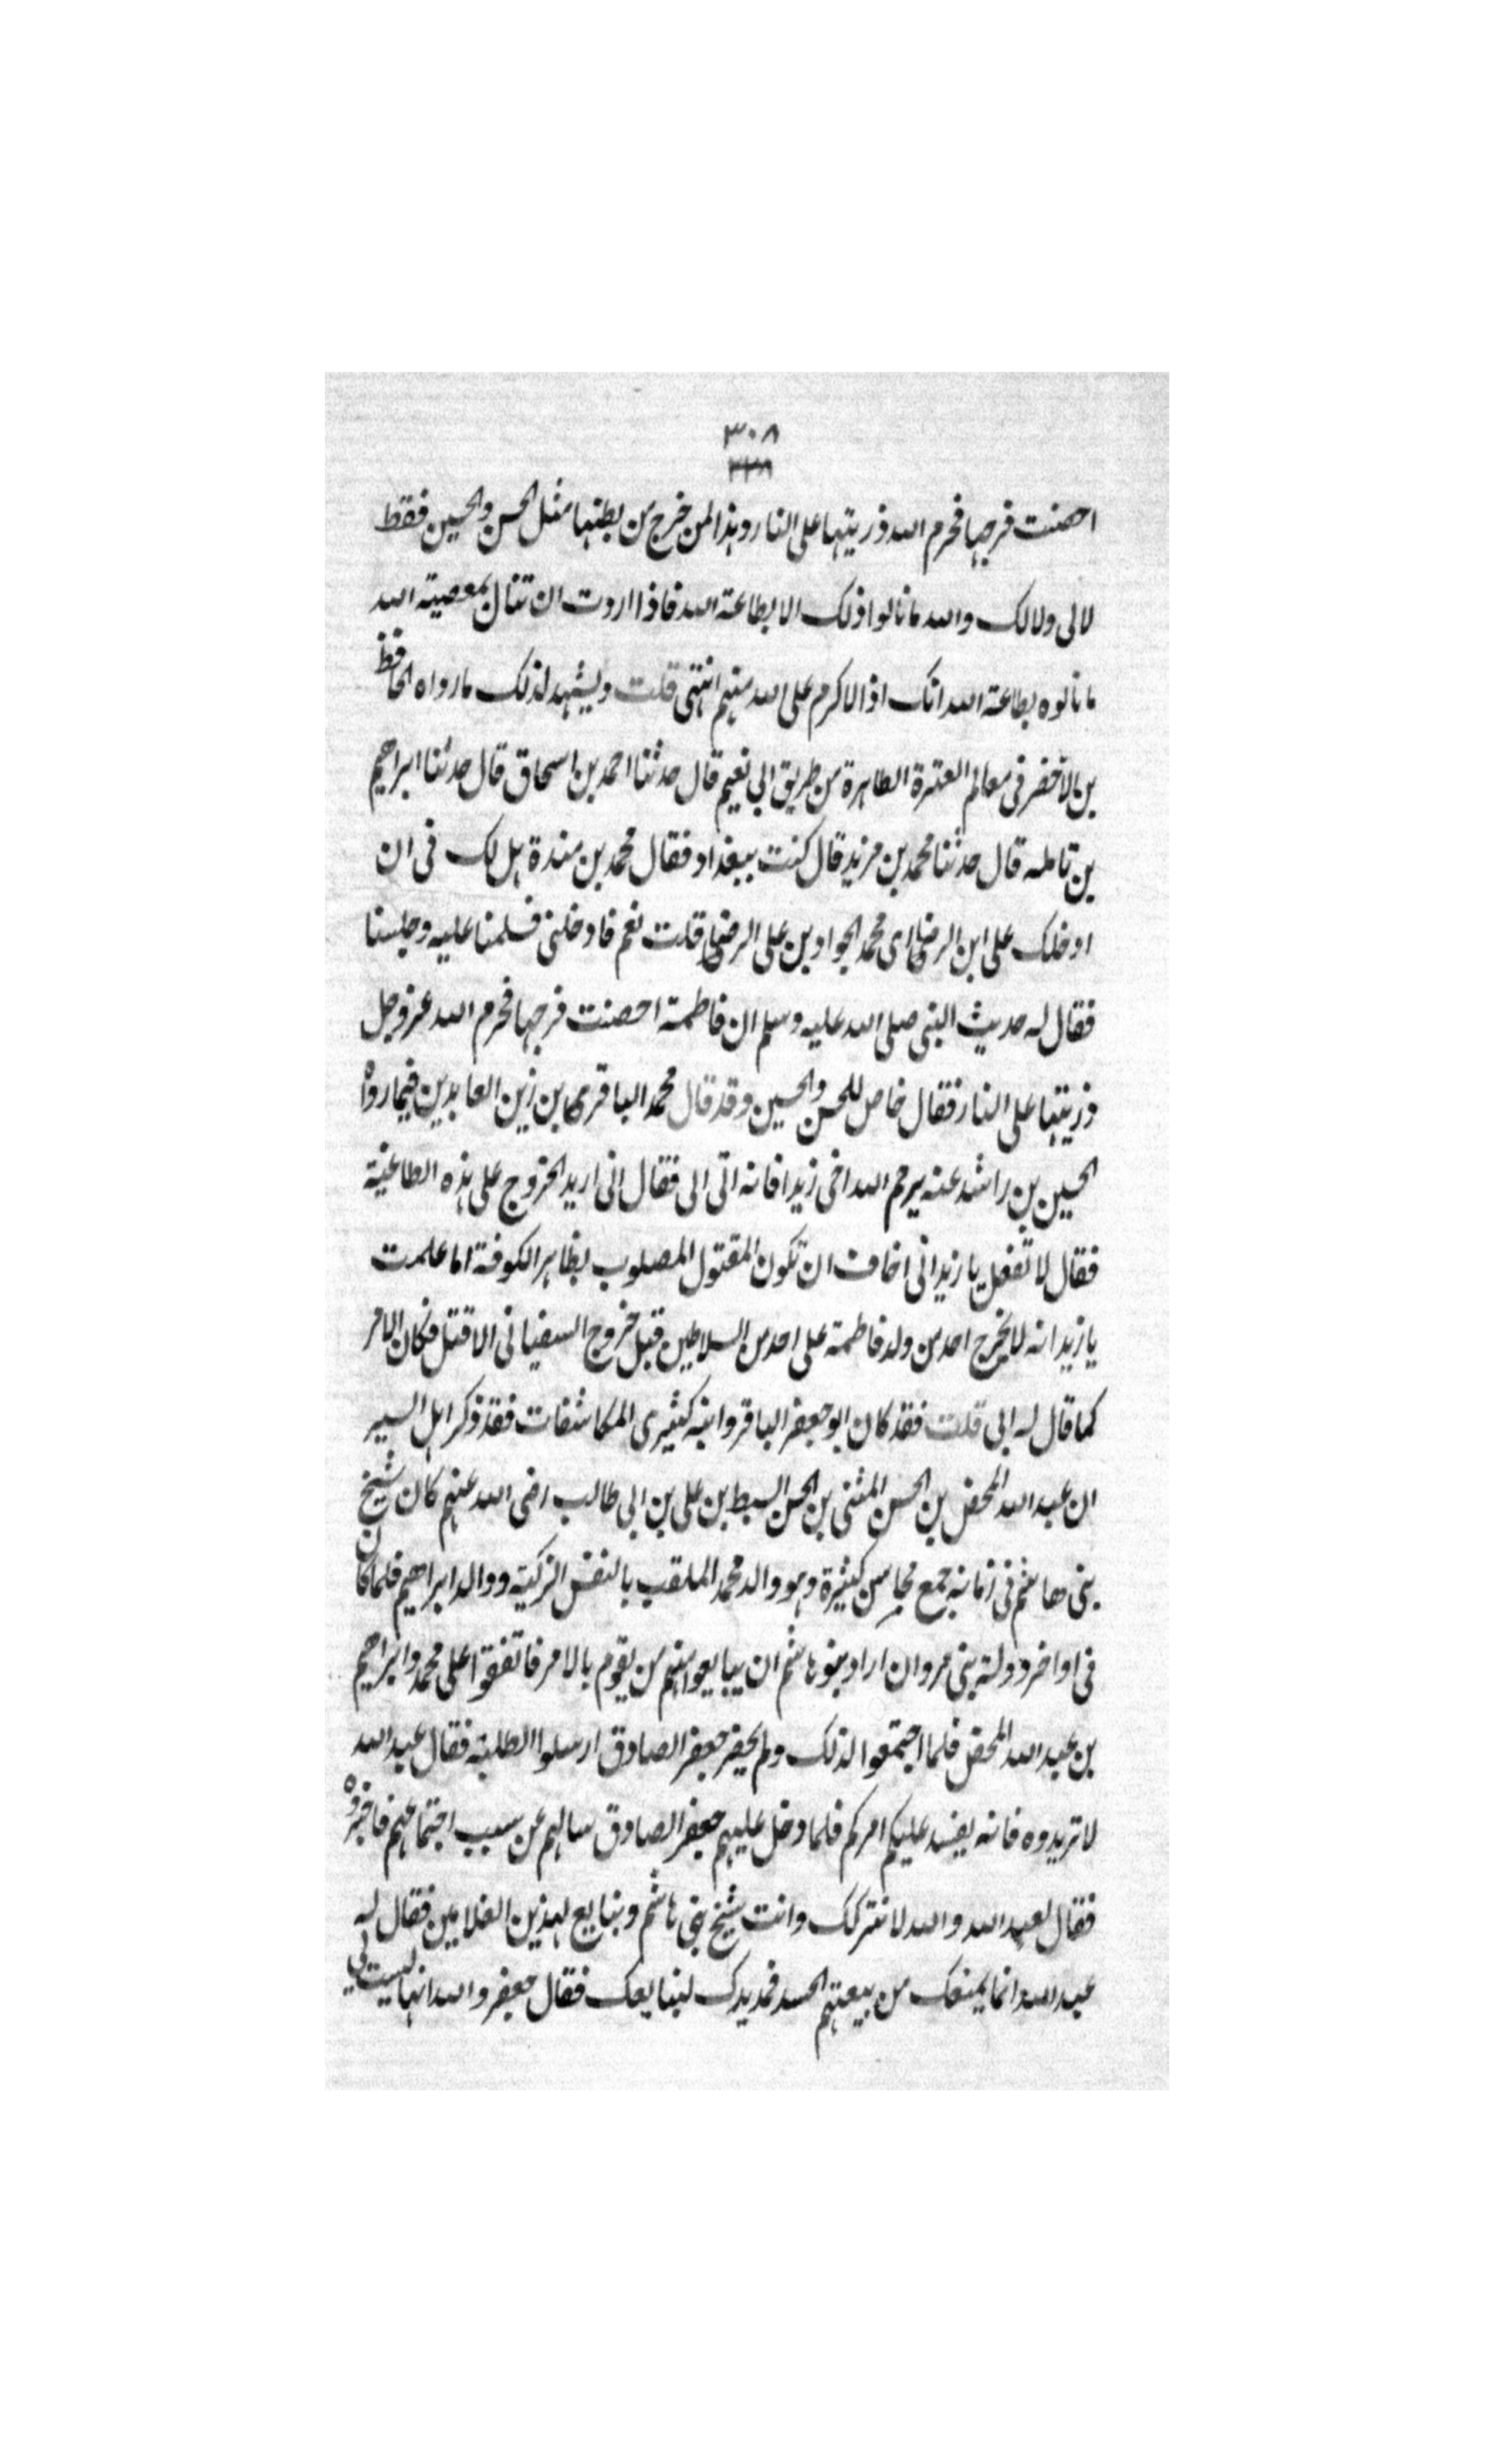 ٣٠٨
٣٣٨
احصنت فرجها فحرم الله ذريتها على النار وهذا لمن خرج من بطنها مثل الحسن والحسين فقط
لا لى ولا لك والله ما نالوا ذلك الا بطاعة الله فاذا اردت ان تنال بمعصية الله
ما نالوه بطاعة الله انك اذا لاكرم على الله منهم انتهى قلت ويشهد لذلك ما رواه الحافظ
بن الاخضر فى معالم العترة الطاهرة من طريق ابى نعيم قال حدثنا احمد بن اسحاق قال حدثنا ابراهيم
بن نائله قال حدثنا محمد بن مزيد قال كنت ببغداد فقال محمد بن مندة هل لك فى ان
ادخلك على ابن الرضا اى محمد الجواد بن على الرضا قلت نعم فادخلنى فسلمنا عليه وجلسنا
فقال له حديث النبى صلى الله عليه وسلم ان فاطمة احصنت فرجها فحرم الله عز وجل
ذريتها على النار فقال خاص للحسن والحسين وقد قال محمد الباقر بن زين العابدين فيما رواه
الحسين بن راشد عنه يرحم الله اخى زيدا فانه اتى ابى فقال انى اريد الخروج على هذه الطاغية
فقال لا تفعل يا زيد انى اخاف ان تكون المقتول المصلوب بظاهر الكوفة اما علمت
يا زيد انه لا يخرج احد من ولد فاطمة على احد من السلاطين قبل خروج السفيانى الا قتل فكان الامر
كما قال له ابى قلت فقد كان ابو جعفر الباقر وابنه كثيرى المكاشفات فقد ذكر اهل السير
ان عبد الله المحض بن الحسن المثنى بن الحسن السبط بن على بن ابى طالب رضى الله عنهم كان شيخ
بنى هاشم فى زمانه جمع محاسن كثيرة وهو والد محمد الملقب بالنفس الزكية ووالد ابراهيم فلما كان
فى اواخر دولة بنى مروان اراد بنو هاشم ان يبايعوا منهم من يقوم بالامر فاتفقوا على محمد وابراهيم
بن عبد الله المحض فلما اجتمعوا لذلك ولم يحضر جعفر الصادق ارسلوا لطلبه فقال عبد الله
لا تريدوه فانه يفسد عليكم امركم فلما دخل عليهم جعفر الصادق سالهم عن سبب اجتماعهم فاخبروه
فقال لعبد الله والله لا نتركك وانت شيخ بنى هاشم ونبايع لهذين الغلامين فقال له
عبد الله انما يمنعك من بيعتهم الحسد فمد يدك لنبايعك فقال جعفر والله انها ليست لى